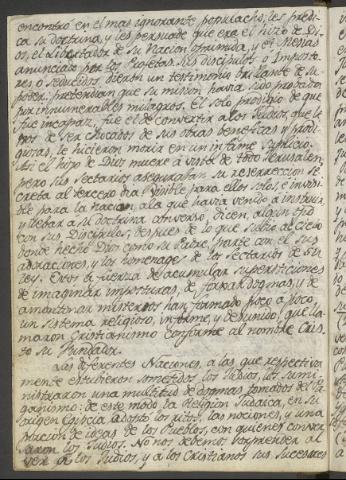 encontro en el mas ignorante populacho; les predi-
ca su doctrina, y les persuade que era el hizo de Di-
os, el Libertador de su Nacion oprimida, y el Mesias
anunciado por los Profetas. Sus discipulos o imposto-
res o seducidos dieron un testimonio brillante de su
poder: pretendian que su mision havia sido probada
por innumerables milagros. El solo prodigio de que
fue incapaz, fue el de convertir a los Judios, que le-
jos de ser tocados de sus obras beneficas y prodi-
giosas, le hicieron morir en un infame suplicio.
Asi el hijo de Dios muere à vista de todo Jerusalen,
pero sus sectarios aseguraban su resurreccion se-
creta al tercero dia. Visible para ellos solos, e invisi-
ble para la nacion, a la que havia venido a instruir
y llebar a su doctrina converso, dicen, algun tpo
con sus Discipulos, despues de lo que subio al cielo
donde hecho Dios como su Padre, parte con el sus
adoraciones, y los homenages de los sectarios de su
Ley. Estos à fuerza de acumular supersticiones
de imaginar imposturas, de forxar dogmas, y de
amontonar misterios han formado poco a poco,
un sistema religioso, informe, y desunido, que lla-
maron Cristianismo conforme al nombre Cris-
to su Fundador.
Las diferentes Naciones, a las que respectiva-
mente estubieron sometidos los Judios, les sumi-
nistraron una multitud de dogmas tomados del Pa-
ganismo: de este modo la Religion Judaica, en su
origen Egipcia adopto los ritos, las nociones, y una
porcion de ideas de los Pueblos, con quienes conver-
saron los Judios. No nos debemos sorprender al
ver a los Judios, y a los Cristianos sus sucesores